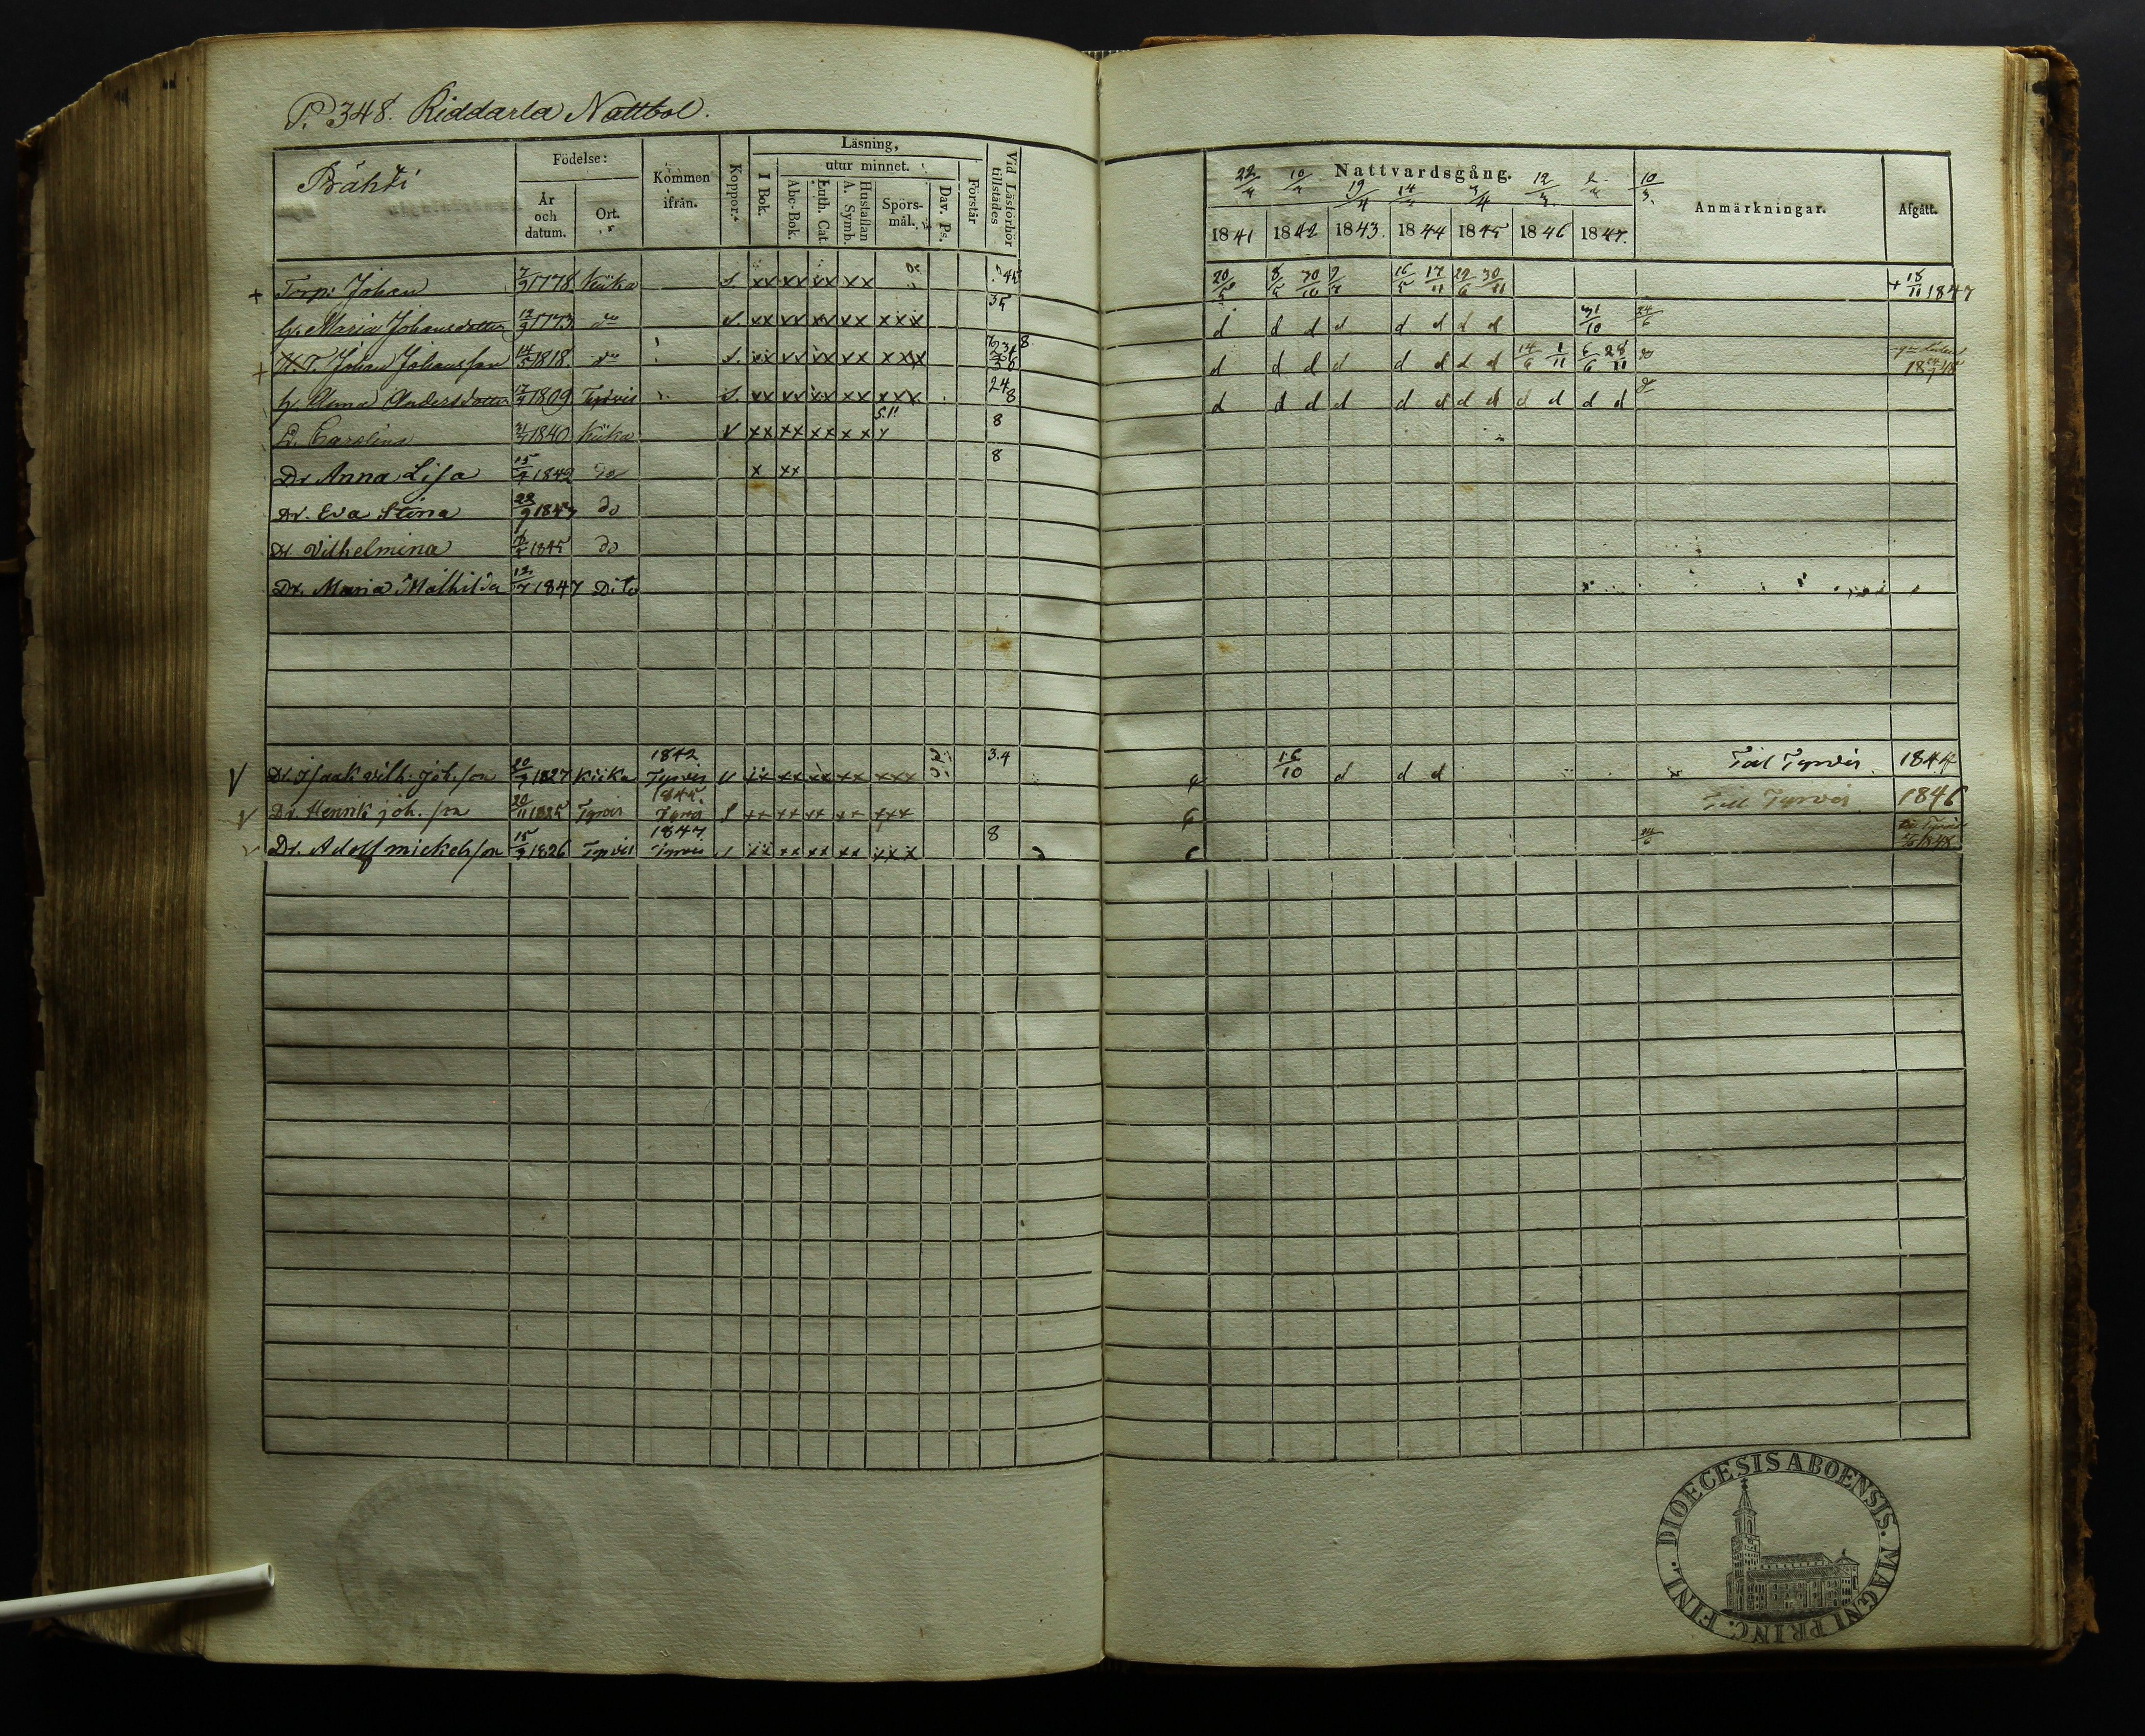 P. 348. Riddarla Nattbol.
Födelse: År och datum. Ort. Kommen ifrån. Koppor. Läsning, I Bok. utur minnet. Abc-Bok. Luth. Cat. A. Symb. Hustaflan Spörs-mål. Dav. Ps. Förstår Vid Läsförhör tillstädes
Nattvardsgång. Anmärkningar. Afgått.
22/4 10/4 19/4 14/4 12/3 10/3.
1841 1842 1843. 1844 1845 1846 1847.
+ Torp: Johan 1778 Kiika S. xx xx xx xx 45 20/5 8/5 30/10 16/5 17/11 30/11 + 18/11 1847
h. Maria Johansdotter 1773 do S. xx xx xx xx xxx 35 d d d d d d d d 31/10 24/6
+ Johan Johansson 1818. do S. xx xx xx xx xxx 8 d d d d d d d d 14/6 1/11 6/6 28/11 do
h. Anna Andersdotter 1809 Tyrvis S. xx xx xx xx xxx 24 8 d d d d d d d d d d d d
D. Carolina 1840 Kiika V xx xx xx xx 8
Dr Anna Lisa 15 1842 do x xx 8
Dr. Eva Stina 22/9 1843 do
Dr. Vilhelmina 1845 do
Dr. Maria Mathilda 12/7 1847 Dito
V Dr. Isaak vilh. joh. son 20 1827 Kiika 1842 Tyrvis V xx xx xx xx xxx 3.4 16/10 d d d Till Tyrvis 1844
V Dr. Henrik joh. son 20/11 1825 Tyrvis 1845. Tyrvis S xx xx xx xx xxx Till Tyrvis 1846
Dr. Adolf mickelsson 15 1826 Tyrvis 1847 Tyrvis xx xx xx xx xxx 8 24/6 Tyrvis 1848
DIOECESIS ABOENSIS. MAGNI PRINC. FINL.